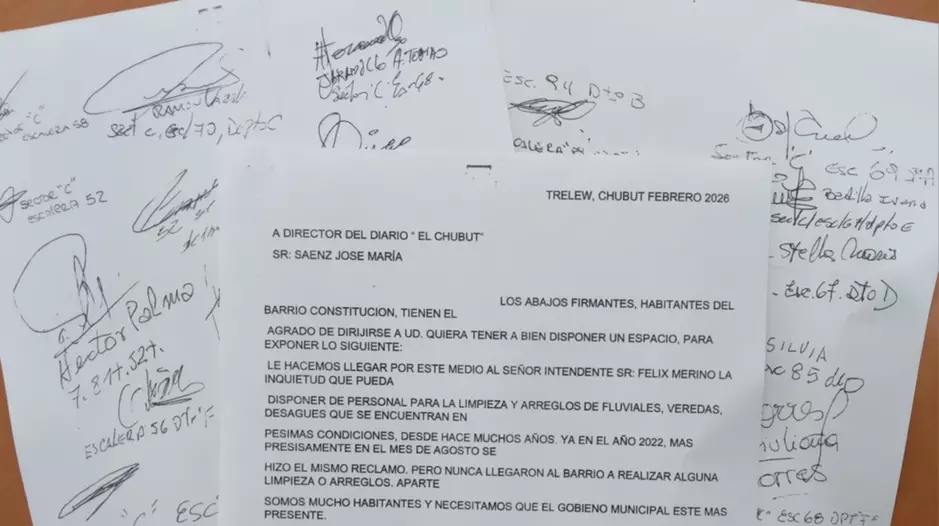 TRELEW, CHUBUT FEBRERO 2026
A DIRECTOR DEL DIARIO " EL CHUBUT"
SR: SAENZ JOSE MARÍA
LOS ABAJOS FIRMANTES, HABITANTES DEL
BARRIO CONSTITUCION, TIENEN EL
AGRADO DE DIRIJIRSE A UD. QUIERA TENER A BIEN DISPONER UN ESPACIO, PARA
EXPONER LO SIGUIENTE:
LE HACEMOS LLEGAR POR ESTE MEDIO AL SEÑOR INTENDENTE SR: FELIX MERINO LA
INQUIETUD QUE PUEDA
DISPONER DE PERSONAL PARA LA LIMPIEZA Y ARREGLOS DE FLUVIALES, VEREDAS,
DESAGUES QUE SE ENCUENTRAN EN
PESIMAS CONDICIONES, DESDE HACE MUCHOS AÑOS. YA EN EL AÑO 2022, MAS
PRESISAMENTE EN EL MES DE AGOSTO SE
HIZO EL MISMO RECLAMO. PERO NUNCA LLEGARON AL BARRIO A REALIZAR ALGUNA
LIMPIEZA O ARREGLOS. APARTE
SOMOS MUCHO HABITANTES Y NECESITAMOS QUE EL GOBIENO MUNICIPAL ESTE MAS
PRESENTE.
ESCALERA 58
RAMON
Sect c, esc/70, Depto C
SECTOR "C"
ESCALERA 52
52
Hector Palma
7.811.527.
ESCALERA 56 DTO "F
"C" ESC
Sector "C" Esc 68
ESC. 94 DTO B
ESCALERA
ESC 69
Stella
Esc. 67. DTO D
SILVIA
85 dto
Torres
ESC 68